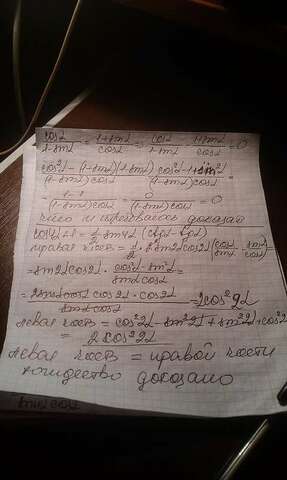 cosα/(1-sinα) = (1+sinα)/cosα = cosα/(1-sinα) - (1+sinα)/cosα = 0
(cos²α-(1-sinα)(1+sinα))/((1-sinα)cosα) = (cos²α-1+sin²α)/((1-sinα)cosα) =
= (1-1)/((1-sinα)cosα) = 0/((1-sinα)cosα) = 0
что и требовалось доказать
cos4α+1 = 1/2 sin4α (ctgα-tgα)
правая часть = 1/2 · 2sin2αcos2α(cosα/sinα - sinα/cosα) =
= sin2αcos2α · (cos²α-sin²α)/(sinαcosα) =
= (2sinαcosα cos2α · cos2α)/(sinαcosα) = 2cos²2α
левая часть = cos²2α-sin²2α+sin²2α+cos²2α
= 2cos²2α
левая часть = правой части
тождество доказано